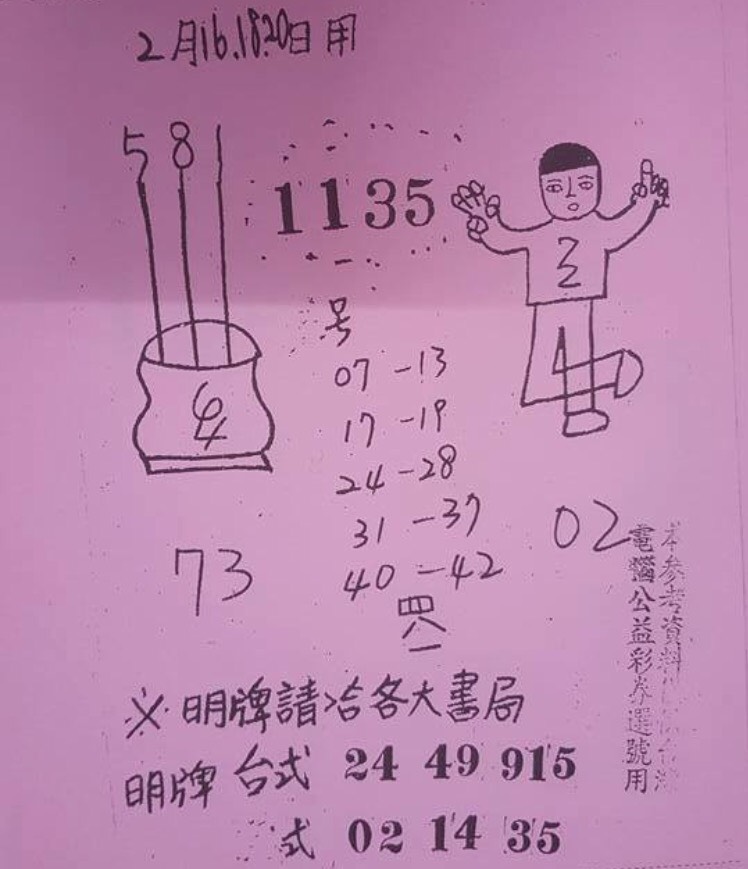 2月16.18.20日用
5 8 1
1135
号
07-13
17-19
24-28
31-37
40-42
四
八
一
73
02
※明牌請洽各大書局
明牌 台式 24 49 915
式 02 14 35
本參考資料
電腦公益彩券選號用